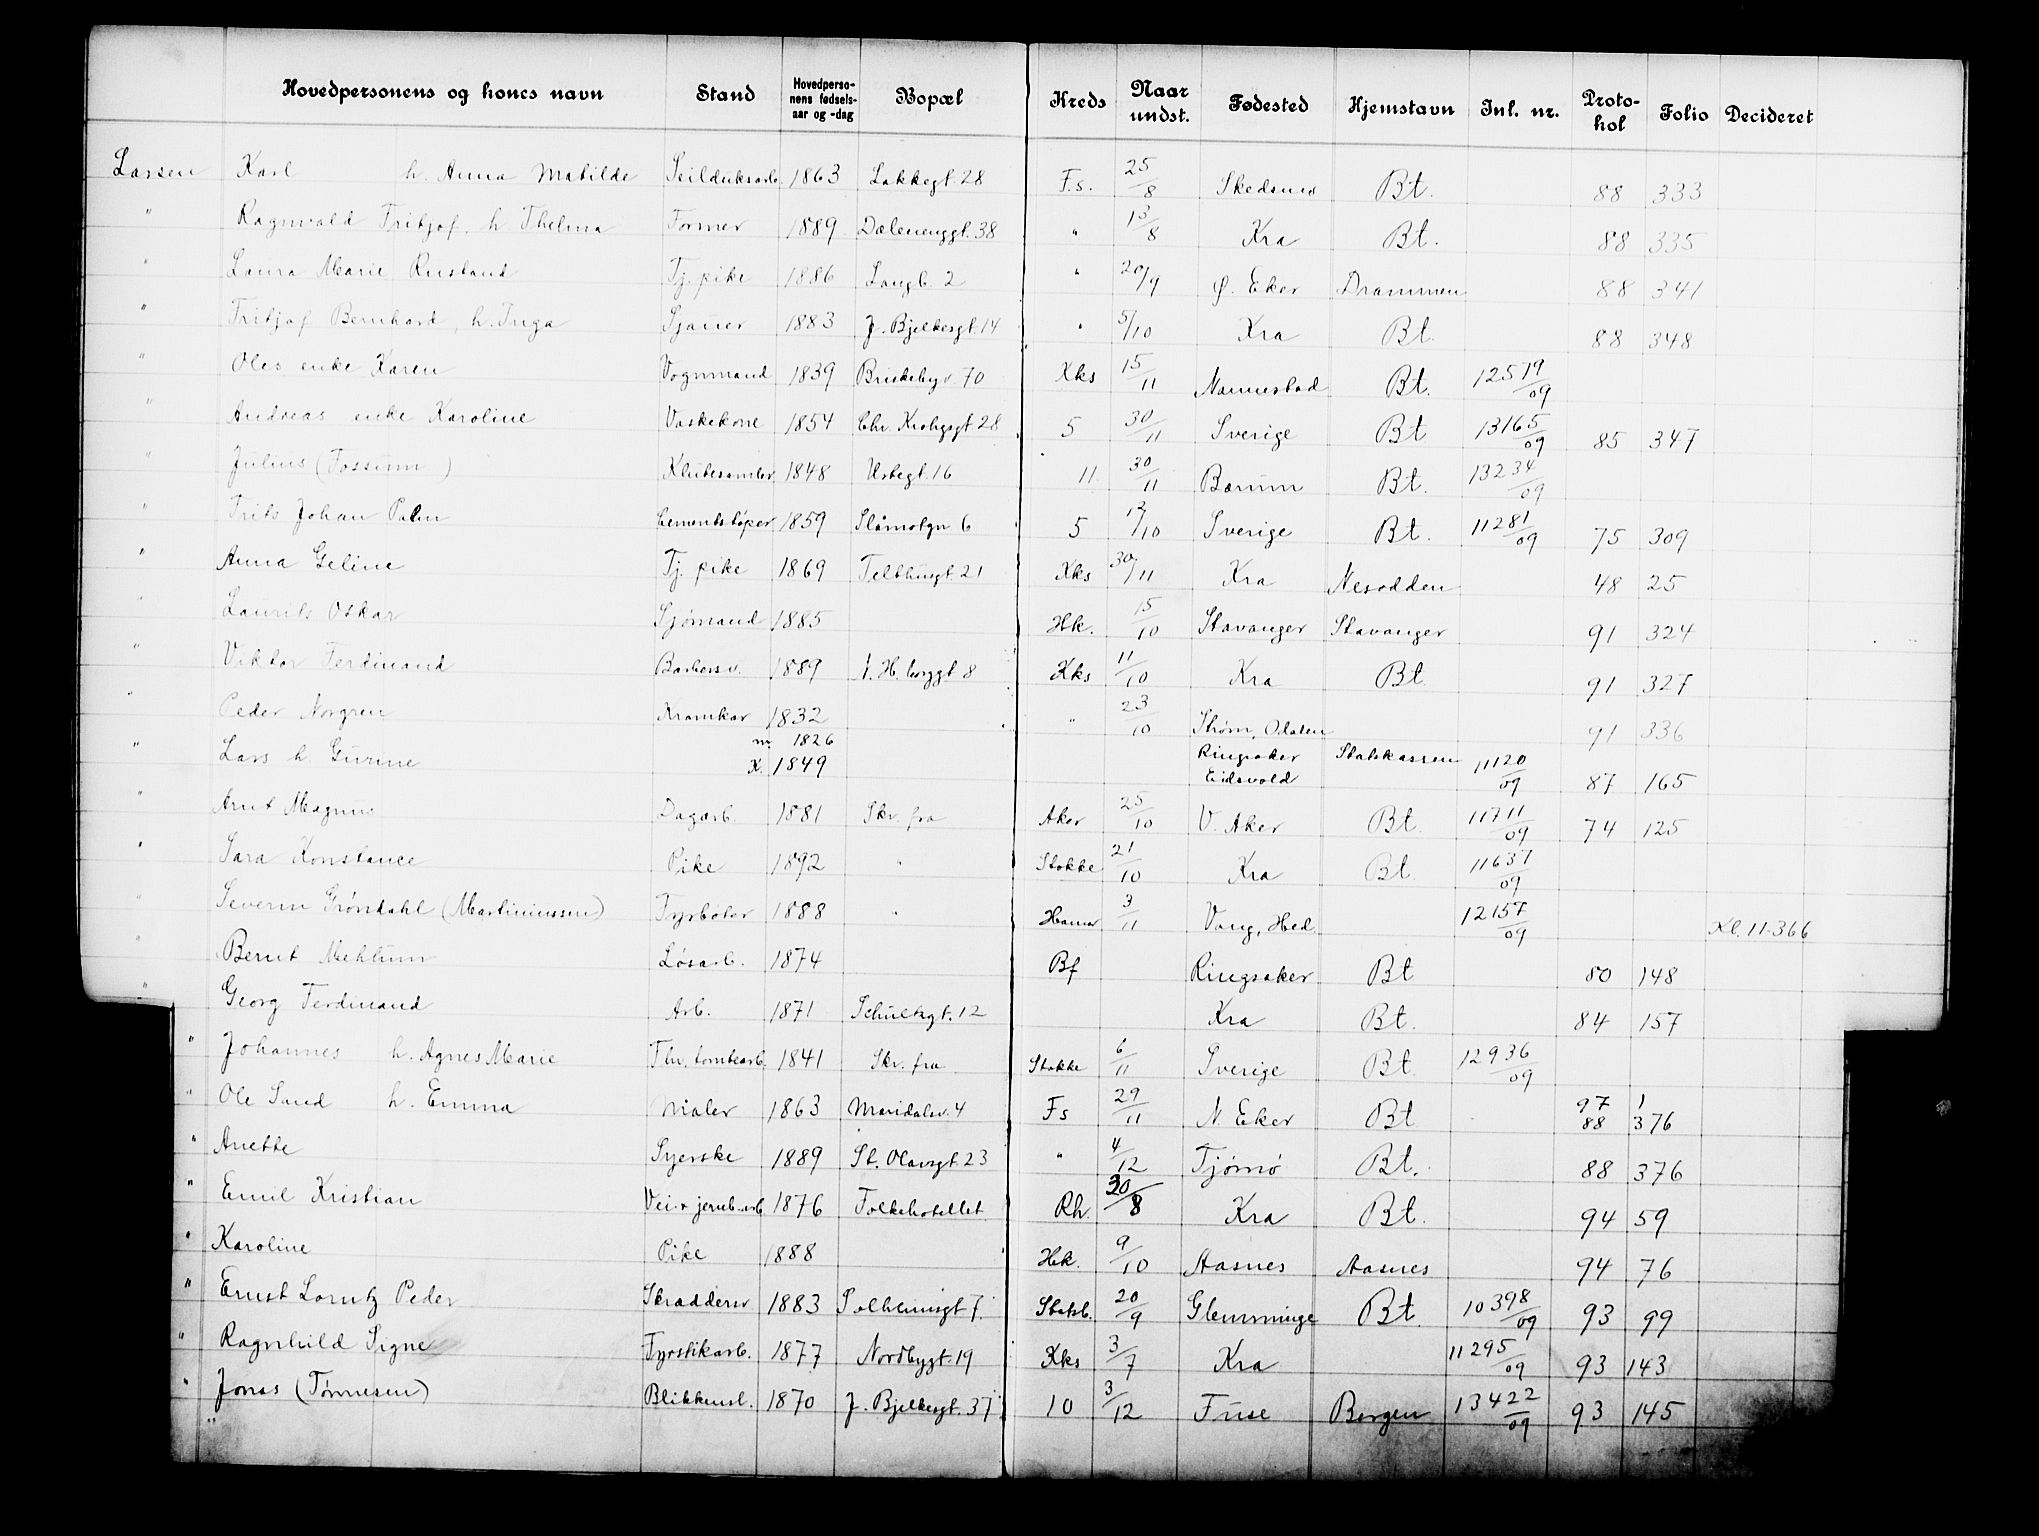 Hovedpersonens og hones navn Stand Hovedperso-nens fødsels-aar og -dag Bopæl Kreds Naar undst. Fødested Hjemstavn Inl. nr. Proto-kol Folio Decideret
Larsen Karl h. Anna Matilde Seilduksarb. 1863 Lakkegt. 28 F.s. 25/8 Skedsmo Bt. 88 333
" Ragnvald Fritjof, h Thelma Former 1889 Dælenenggt. 38 " 13/8 Kra Bt. 88 335
" Laura Marie Rustand Tj. pike 1886 Langb. 2 " 20/9 Ø. Eker Drammen 88 341
" Fritjof Bernhard, h. Inga Sjauer 1883 J. Bjelkesgt. 14 " 5/10 Kra Bt. 88 348
" Oles enke Karen Vognmand 1839 Briskebyv. 70 Kks 15/11 Nannestad Bt. 12579/09
" Andreas enke Karoline Vaskekone 1854 Chr. Krohgsgt 28 5 30/11 Sverige Bt 13165/09 85 347
" Julius (Fossum) Klutesamler 1848 Urtegt. 16 11 30/11 Bærum Bt. 13234/09
" Frits Johan Palm Cementstøper 1859 Slåmotgn 6 5 12/10 Sverige Bt. 11281/09 75 309
" Anna Geline Tj. pike 1869 Telthusgt. 21 Kks 30/11 Kra Nesodden 48 25
" Laurits Oskar Sjømand 1885 Hk. 15/10 Stavanger Stavanger 91 324
" Viktor Ferdinand Barbersv. 1889 N. H. Corygt 8 Kks 11/10 Kra Bt. 91 327
" Peder Norgren Kramkar 1832 " 23/10 Strøm, Odalen 91 336
" Lars h. Gurine m. 1826 K. 1849 Ringsaker Eidsvold Statskassen 11120/09 87 165
" Arnt Magnus Dagarb. 1881 Skr. fra Aker 25/10 V. Aker Bt. 11711/09 74 125
" Sara Konstance Pike 1892 " Stokke 21/10 Kra Bt. 11637/09
" Severin Grøndahl (Martiniussen) Fyrbøter 1888 " Hamar 3/11 Vang, Hed. 12157/09 Kl. 11-366
" Bernt Mehlum Løsarb. 1874 Bf Ringsaker Bt 80 148
" Georg Ferdinand Arb. 1871 Schultzgt. 12 Kra Bt. 84 157
" Johannes h. Agnes Marie Thv. tomtearb. 1841 Skr. fra Stokke 6/11 Sverige Bt. 12936/09
" Ole Sand h. Emma Maler 1863 Maridalsv. 4 Fs 29/11 N. Eker Bt 97 1 88 376
" Anette Syerske 1889 St. Olavsgt. 23 " 4/12 Tjømø Bt. 88 376
" Emil Kristian Vei- & jernb.arb 1876 Folkehotellet Rh. 30/8 Kra Bt. 94 59
" Karoline Pike 1888 Hk. 9/10 Aasnes Aasnes 94 76
" Ernst Lorntz Peder Skrædderw 1883 Solheimsgt 7. Statsb. 20/9 Glemminge Bt. 10398/09 93 99
" Ragnhild Signe Fyrstikarb. 1877 Nordbygt. 19 Kks 3/7 Kra 11295/09 93 143
" Jonas (Tønnesen) Blikkensl. 1870 J. Bjelkesgt. 37 10 3/12 Fuse Bergen 13422/09 93 145
"